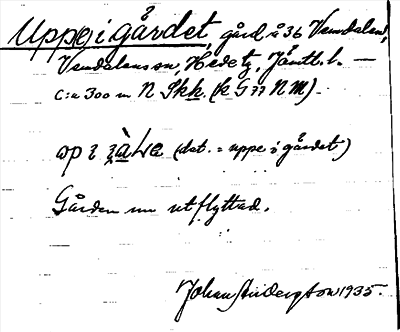 Uppe i gårdet, gård å 36 Vemdalen,
Vemdalens sn, Hede tg, Jämtl. l. —
c:a 300 m N Skh. (k G 77 N M).
op i (dat. = uppe i gärdet)
Gården nu utflyttad.
Johan Anderzton 1935.